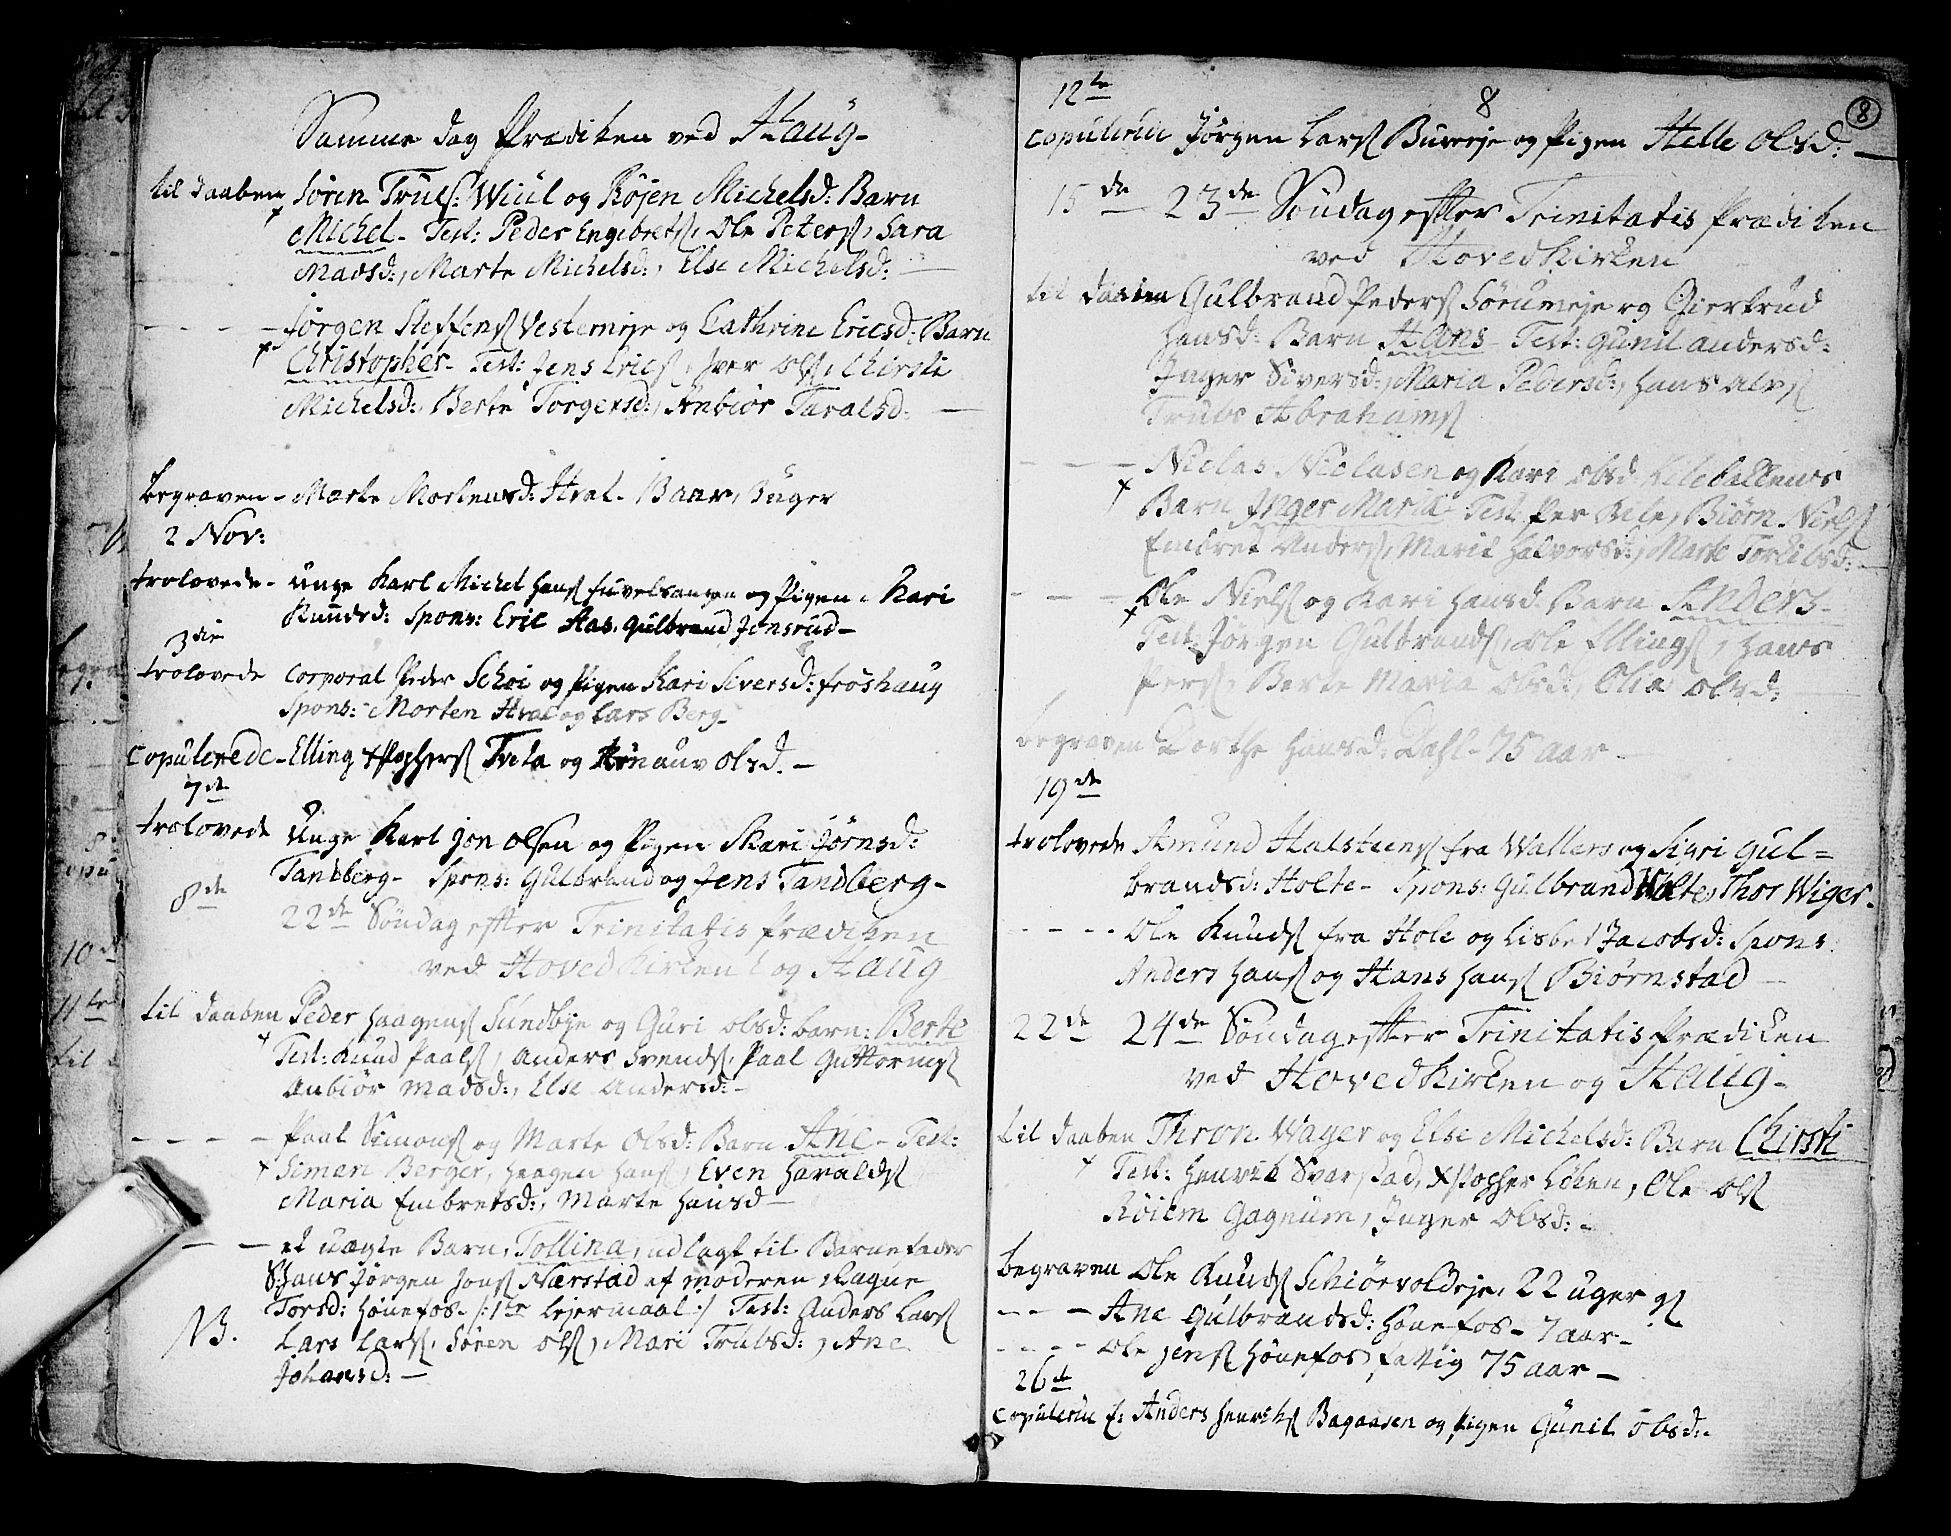 Samme dag Prædiken ved Haug-
til Daaben Søren Truls: Wiul og Røjen Michelsd: Barn
Michel- Test: Peder Engebretß, Ole Petersß, Sara
Madsd:, Marte Michelsd:, Else Michelsd: —
- - - - Jørgen Steffensß Vesterneje og Cathrine Ericsd: Barn
Christopher- Test: Jens Ericß, Iver Olß, Chirsti
Michelsd:, Berte Torgersd:, Anbiør Taralsd: —
begraven - Marte Mortensd: Hval- 13 aar, 3 uger
2 Nov:
trolovede- unge Karl Michel Hansß og Pigen Kari
Knudsd: Spons: Eric Aas, Gulbrand Jonsrud-
3die
trolovede Corporal Peder Schoi og Pigen Kari Siversd: Frøshaug
Spons: Morten Hval og Lars Berg-
copulerede- Elling Xstophersß Tveta og Rønauv Olsd. -
7de
trolovede unge Karl Jon Olsen og Pigen Kari Jørnsd:
Tandberg- Spons: Gulbrand og Jens Tandberg-
8de
22de Søndag effter Trinitatis Prædiken
ved Hovedkirken og Haug
til Daaben Peder Haagensß Sundbye og Guri Olsd: barn: Berte
Test: Knud Paalsß, Anders Svendsß, Paal Guttormsß
Anbiør Madsd:, Else Andersd: -
- - - - Paal Simonsß og Marte Olsd: Barn Ane- Test:
Simen Berger, Haagen Hansß, Even Haraldsß
Maria Embretsd:, Marte Hansd-
- - - et uægte Barn, Tollina, udlagt til Barnefader
Hans Jørgen Jonsß Nærstad af moderen, Ragne
Torsd: Hønefos- /:1te Lejermaal:/ Test: Anders Larsß
NB. Lars Larsß, Søren Olsß, Mari Trulsd:, Ane
Johansd: -
12te
8
8
copulerin Jørgen Larsß Bureje og Pigen Helle Olsd: -
15de 23de Søndag effter Trinitatis Prædiken
ved Hovedkirken
til daaben Gulbrand Pedersß Sørumeje og Giertrud
Hansd: Barn Hans- Test: Gunil Andersd:
Inger Siversd:, Maria Pedersd:, Hans Alvß
Truls Abrahamsß
- - - Niclas Niclasen og Kari Olsd:
Barn Inger Maria- Test: Per Bile, Biørn Nielsß
Embret Andersß, Marit Halvorsd:, Marte Torkilsd: -
- - - Ole Nielsß og Kari Hansd: Barn Anders-
Test: Jørgen Gulbrandsß, Ole Ellingsß, Hans
Persß, Berte Maria Olsd:, Olia Olsd:
begraven Dorthe Hansd: Dahl- 75 aar -
19de
trolovede Amund Halsteensß fra Wallers og Kari Gul=
brandsd: Holte- Spons: Gulbrand Holte, Thor Wiger-
- - - - Ole Knudsß fra Hole og Lisbet Jacobsd: Spons:
Anders Hansß og Hans Hansß Biørnstad -
22de 24de Søndag effter Trinitatis Prædiken
ved Hovedkirken og Haug-
til daaben Thron Wager og Else Michelsd: Barn Chirsti
Test: Henrik Svarstad, Xstopher Løken, Ole Olsß
Røiem Gagnum, Inger Olsd: -
begraven Ole Knudsß Schiørvoldeje, 22 uger gß
- - - Ane Gulbrandsd: Hønefos- 7 aar-
- - - - Ole Jensß Hønefos, fattig 75 aar -
26de
copulerin f: Anders Henrichsß Bagaasen og Pigen Gunil Olsd:-